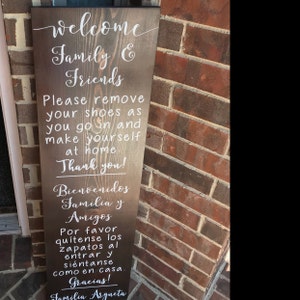 welcome
Family &
Friends
Please remove
your shoes as
you go in and
make yourself
at home.
Thank you!
Bienvenidos
Familia y
Amigos
Por favor
quítense los
zapatos al
entrar y
siéntanse
como en casa.
Gracias!
Familia Argueta